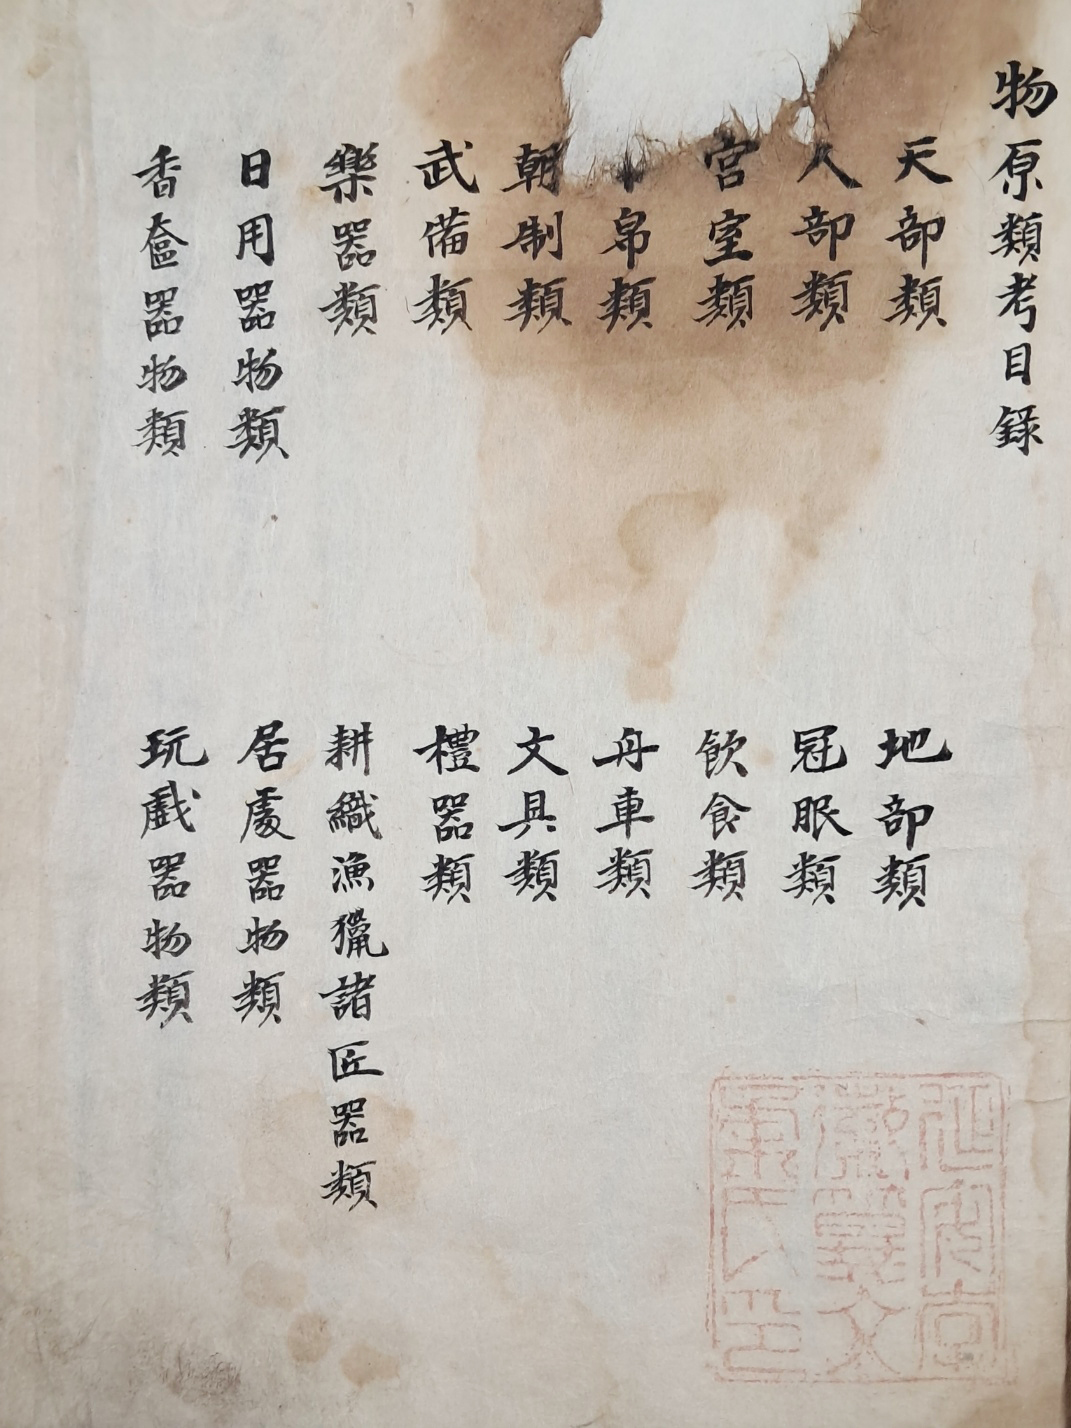 物原類考目錄
天部類
地部類
人部類
冠服類
宮室類
飲食類
帛類
舟車類
朝制類
文具類
武備類
禮器類
樂器類
耕織漁獵諸匠器類
日用器物類
居處器物類
香奩器物類
玩戲器物類